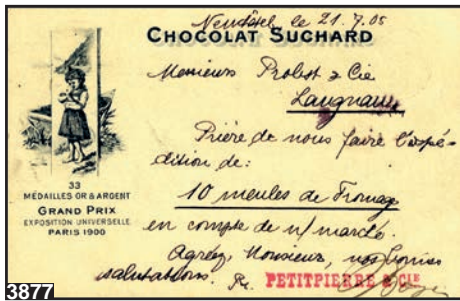 Neuchâtel le 21.7.05
CHOCOLAT SUCHARD
Messieurs Probst & Cie
Langnau
Prière de nous faire l'expé-
dition de:
10 meules de Fromage
en compte de n/ marché.
Agréez, Messieurs, nos bonnes
salutations. Pr. PETITPIERRE & CIE
33
MÉDAILLES OR & ARGENT
GRAND PRIX
EXPOSITION UNIVERSELLE
PARIS 1900
3877